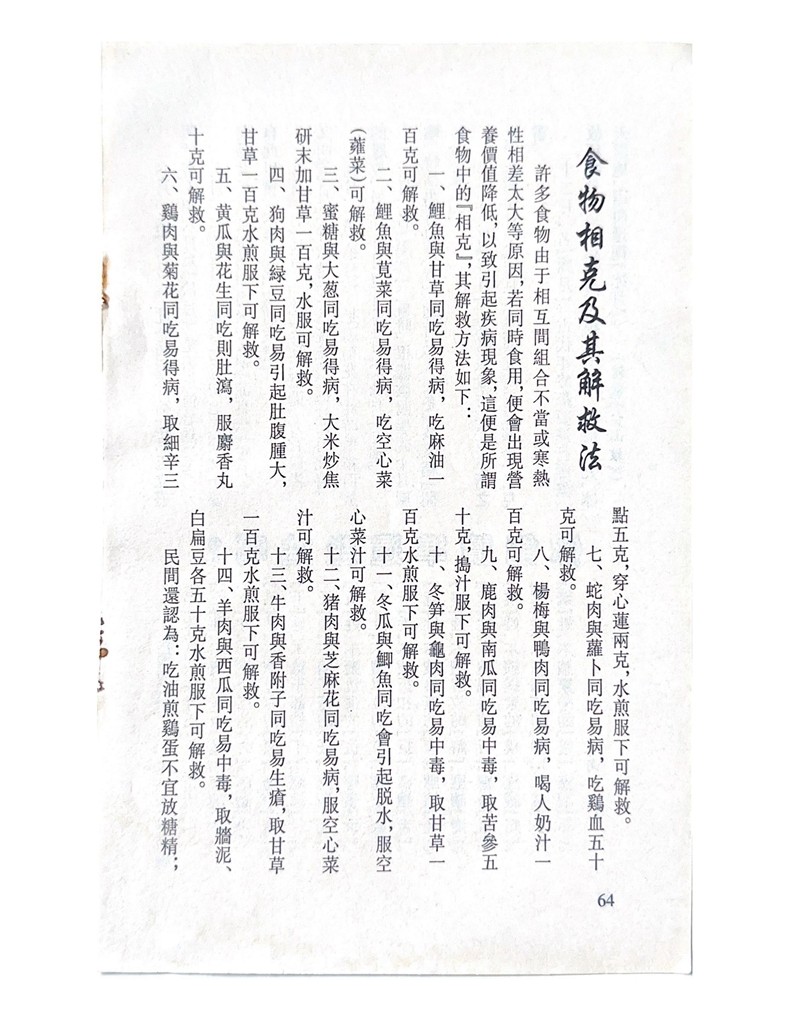 食物相克及其解救法
許多食物由于相互間組合不當或寒熱
性相差太大等原因，若同時食用，便會出現營
養價值降低，以致引起疾病現象，這便是所謂
食物中的『相克』，其解救方法如下：
一、鯉魚與甘草同吃易得病，吃麻油一
百克可解救。
二、鯉魚與莧菜同吃易得病，吃空心菜
（蕹菜）可解救。
三、蜜糖與大葱同吃易得病，大米炒焦
研末加甘草一百克，水服可解救。
四、狗肉與緑豆同吃易引起肚腹腫大，
甘草一百克水煎服下可解救。
五、黄瓜與花生同吃則肚瀉，服麝香丸
十克可解救。
六、鷄肉與菊花同吃易得病，取細辛三
點五克，穿心蓮兩克，水煎服下可解救。
七、蛇肉與蘿卜同吃易病，吃鷄血五十
克可解救。
八、楊梅與鴨肉同吃易病，喝人奶汁一
百克可解救。
九、鹿肉與南瓜同吃易中毒，取苦參五
十克，搗汁服下可解救。
十、冬笋與龜肉同吃易中毒，取甘草一
百克水煎服下可解救。
十一、冬瓜與鯽魚同吃會引起脱水，服空
心菜汁可解救。
十二、猪肉與芝麻花同吃易病，服空心菜
汁可解救。
十三、牛肉與香附子同吃易生瘡，取甘草
一百克水煎服下可解救。
十四、羊肉與西瓜同吃易中毒，取牆泥、
白扁豆各五十克水煎服下可解救。
民間還認為：吃油煎鷄蛋不宜放糖精；
64